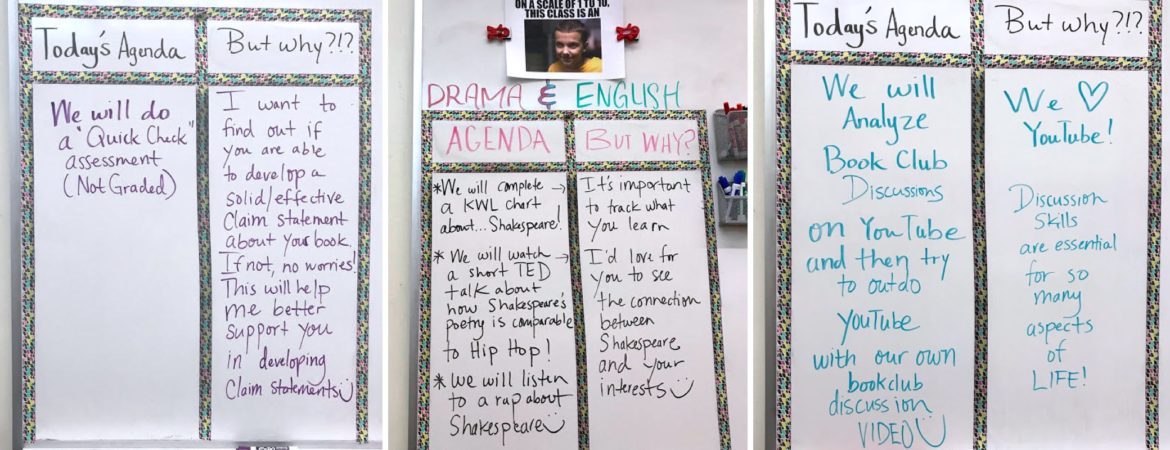 Today's Agenda
We will do
a "Quick Check"
assessment
(Not Graded)
But why?!?
I want to
find out if
you are able
to develop a
solid/effective
Claim statement
about your book.
If not, no worries!
This will help
me better
support you
in developing
Claim statements
ON A SCALE OF 1 TO 10,
THIS CLASS IS AN
DRAMA & ENGLISH
AGENDA
*We will complete →
a KWL chart
about... Shakespeare!
* We will watch →
a short TED
talk about
how Shakespeare's
poetry is comparable
to Hip Hop!
* We will listen
to a rap about
Shakespeare
BUT WHY?
It's important
to track what
you learn
I'd love for
you to see
the connection
between
Shakespeare
and your
interests
Today's Agenda
We will
Analyze
Book Club
Discussions
on YouTube
and then try
to outdo
YouTube
with our own
bookclub
discussion
VIDEO
But why?!?
We ♡
YouTube!
Discussion
Skills
are essential
for so
many
aspects
of
LIFE!